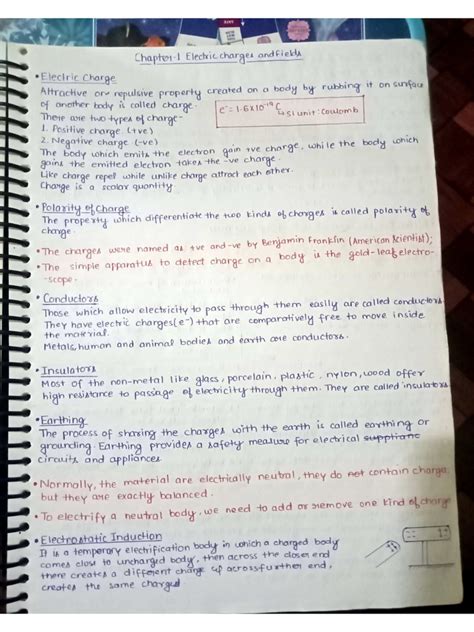 Chapter-1 Electric charges and fields
• Electric Charge
Attractive or repulsive property created on a body by rubbing it on surface
of another body is called charge.
e⁻ = 1.6×10⁻¹⁹C
↳ SI unit: Coulomb
There are two types of charge-
1. Positive charge (+ve)
2. Negative charge (-ve)
The body which emits the electron gain +ve charge, while the body which
gains the emitted electron takes the -ve charge.
Like charge repel while unlike charge attract each other.
Charge is a scalar quantity.
• Polarity of Charge
The property which differentiate the two kinds of charges is called polarity of
charge.
• The charges were named as +ve and -ve by Benjamin Franklin (American Scientist);
• The simple apparatus to detect charge on a body is the gold-leaf electro-
-scope.
• Conductors
Those which allow electricity to pass through them easily are called conductors.
They have electric charges (e⁻) that are comparatively free to move inside
the material.
Metals, human and animal bodies and earth are conductors.
• Insulators
Most of the non-metal like glass, porcelain, plastic, nylon, wood offer
high resistance to passage of electricity through them. They are called insulators
• Earthing
The process of sharing the charges with the earth is called earthing or
grounding. Earthing provides a safety measure for electrical
circuits and appliances
• Normally, the material are electrically neutral, they do not contain charge,
but they are exactly balanced.
• To electrify a neutral body, we need to add or remove one kind of charge
• Electrostatic Induction
It is a temporary electrification body in which a charged body
comes close to uncharged body, then across the closer end
there creates a different charge & across further end,
creates the same charged